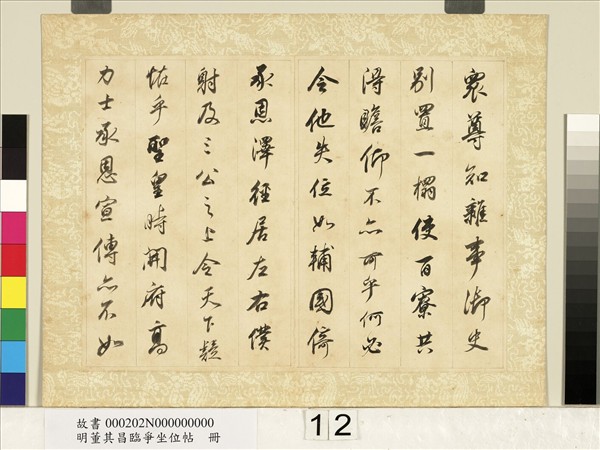 衆尊知雜事御史
別置一榻使百寮共
得瞻仰不亦可乎何必
令他失位如輔國倚
承恩澤徑居左右僕
射及三公之上令天下疑
恠乎聖皇時開府高
力士承恩宣傳亦不如
故書 000202N000000000
明董其昌臨爭坐位帖 冊
12